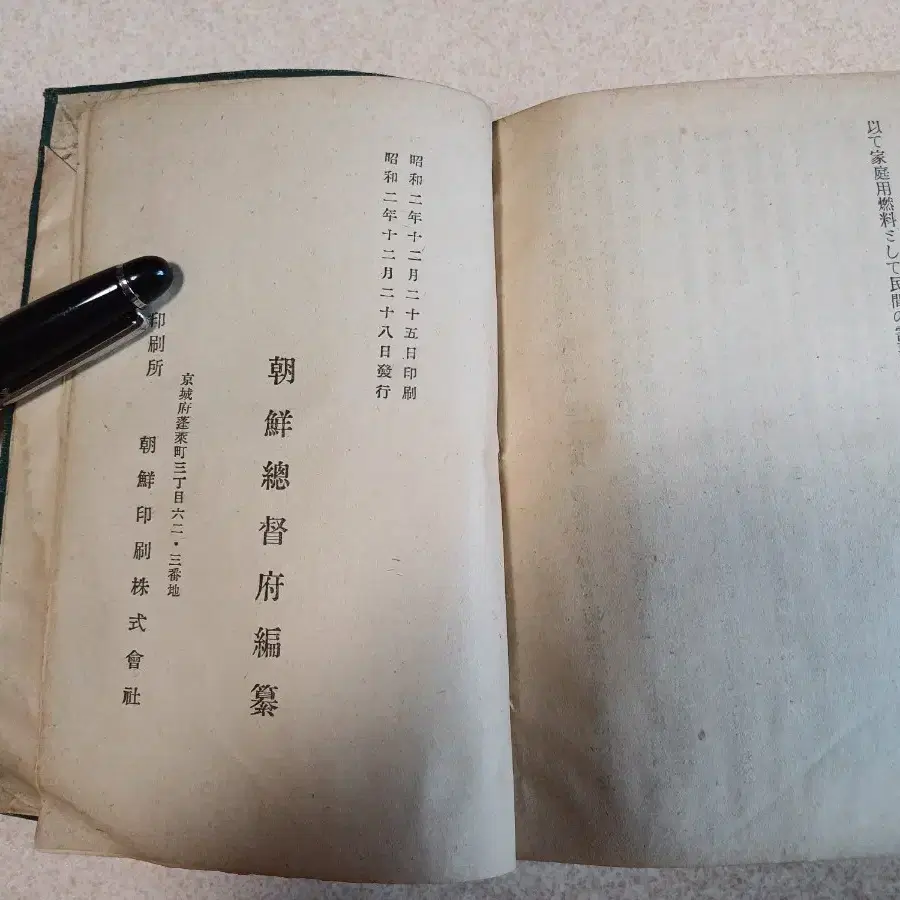 以て家庭用燃料として民間の
昭和二年十二月二十五日印刷
昭和二年十二月二十八日發行
朝鮮總督府編纂
京城府蓬萊町三丁目六二・三番地
印刷所 朝鮮印刷株式會社